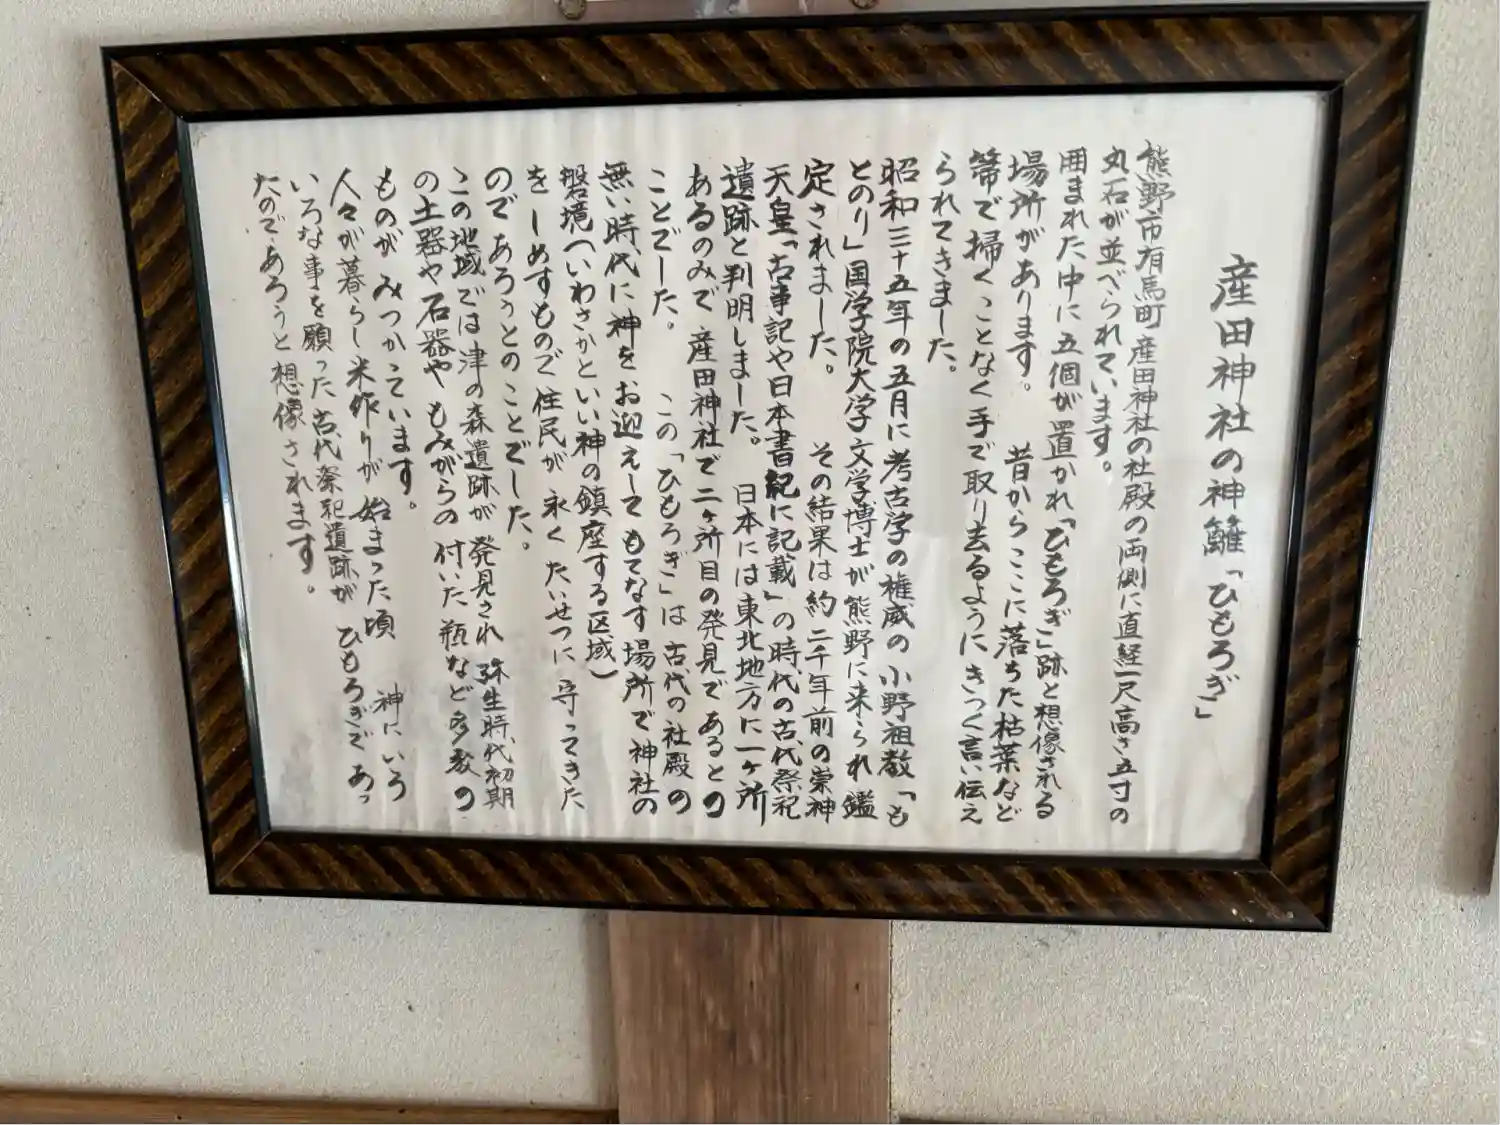 産田神社の神籬「ひもろぎ」
熊野市有馬町産田神社の社殿の両側に直経一尺高さ五寸の
丸石が並べられています。
囲まれた中に五個が置かれ「ひもろぎ」跡と想像される
場所があります。 昔からここに落ちた枯葉など
箒で掃くことなく手で取り去るようにきつく言い伝え
られてきました。
昭和三十五年の五月に考古学の権威の小野祖教「も
とのり」国学院大学文学博士が熊野に来られ鑑
定されました。 その結果は約二千年前の崇神
天皇「古事記や日本書紀に記載」の時代の古代祭祀
遺跡と判明しました。 日本には東北地方に一ヶ所
あるのみで産田神社で二ヶ所目の発見であるとの
ことでした。 この「ひもろぎ」は古代の社殿の
無い時代に神をお迎えしてもてなす場所で神社の
磐境(いわさかといい神の鎮座する区域)
をしめすもので住民が永くたいせつに守ってきた
のであろうとのことでした。
この地域では津の森遺跡が発見され弥生時代初期
の土器や石器やもみがらの付いた瓶など多数の
ものがみつかています。
人々が暮らし米作りが始まった頃 神にいろ
いろな事を願った古代祭祀遺跡がひもろぎであっ
たのであろうと想像されます。